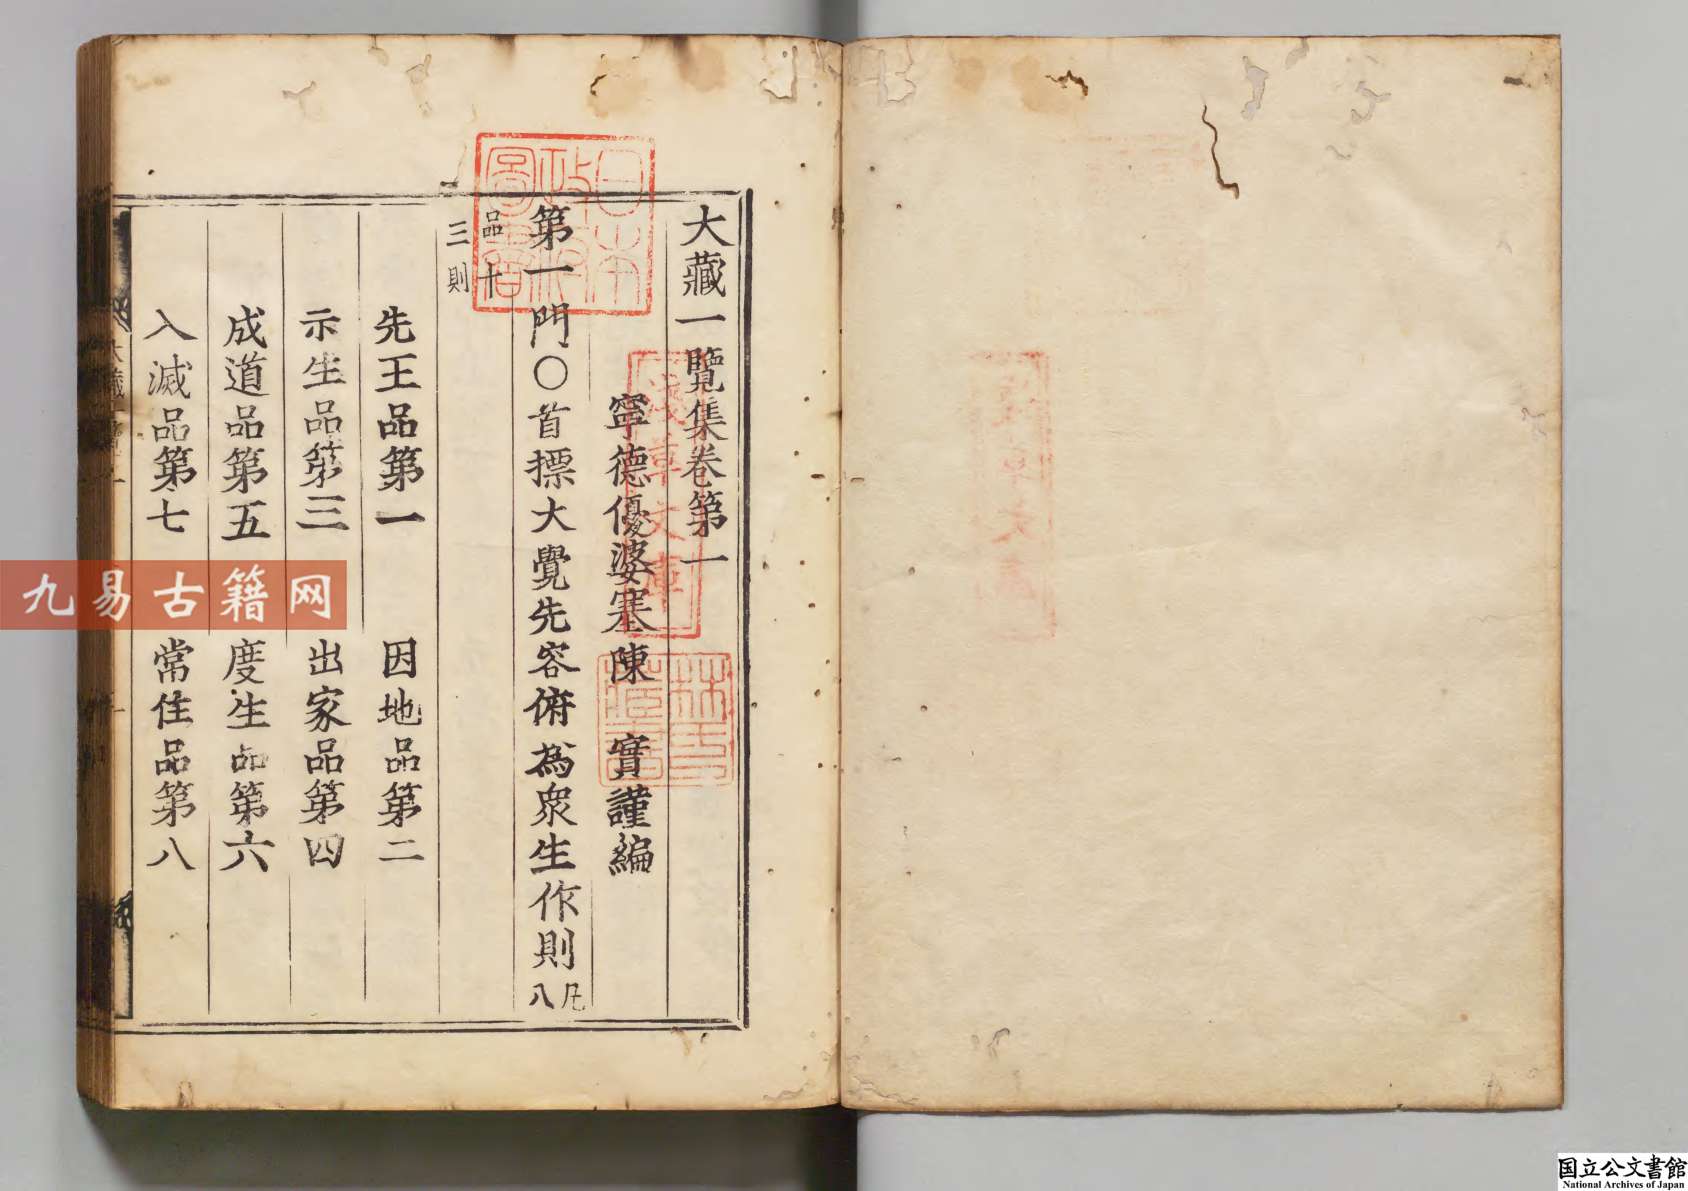 大藏一覽集卷第一
寧德優婆塞陳 實謹編
第一門○首摽大覺先容俯為衆生作則凡八
品十三則
先王品第一 因地品第二
示生品第三 出家品第四
成道品第五 度生品第六
入滅品第七 常住品第八
日本政府圖書
淺草文庫
林氏藏書
九易古籍网
国立公文書館
National Archives of Japan